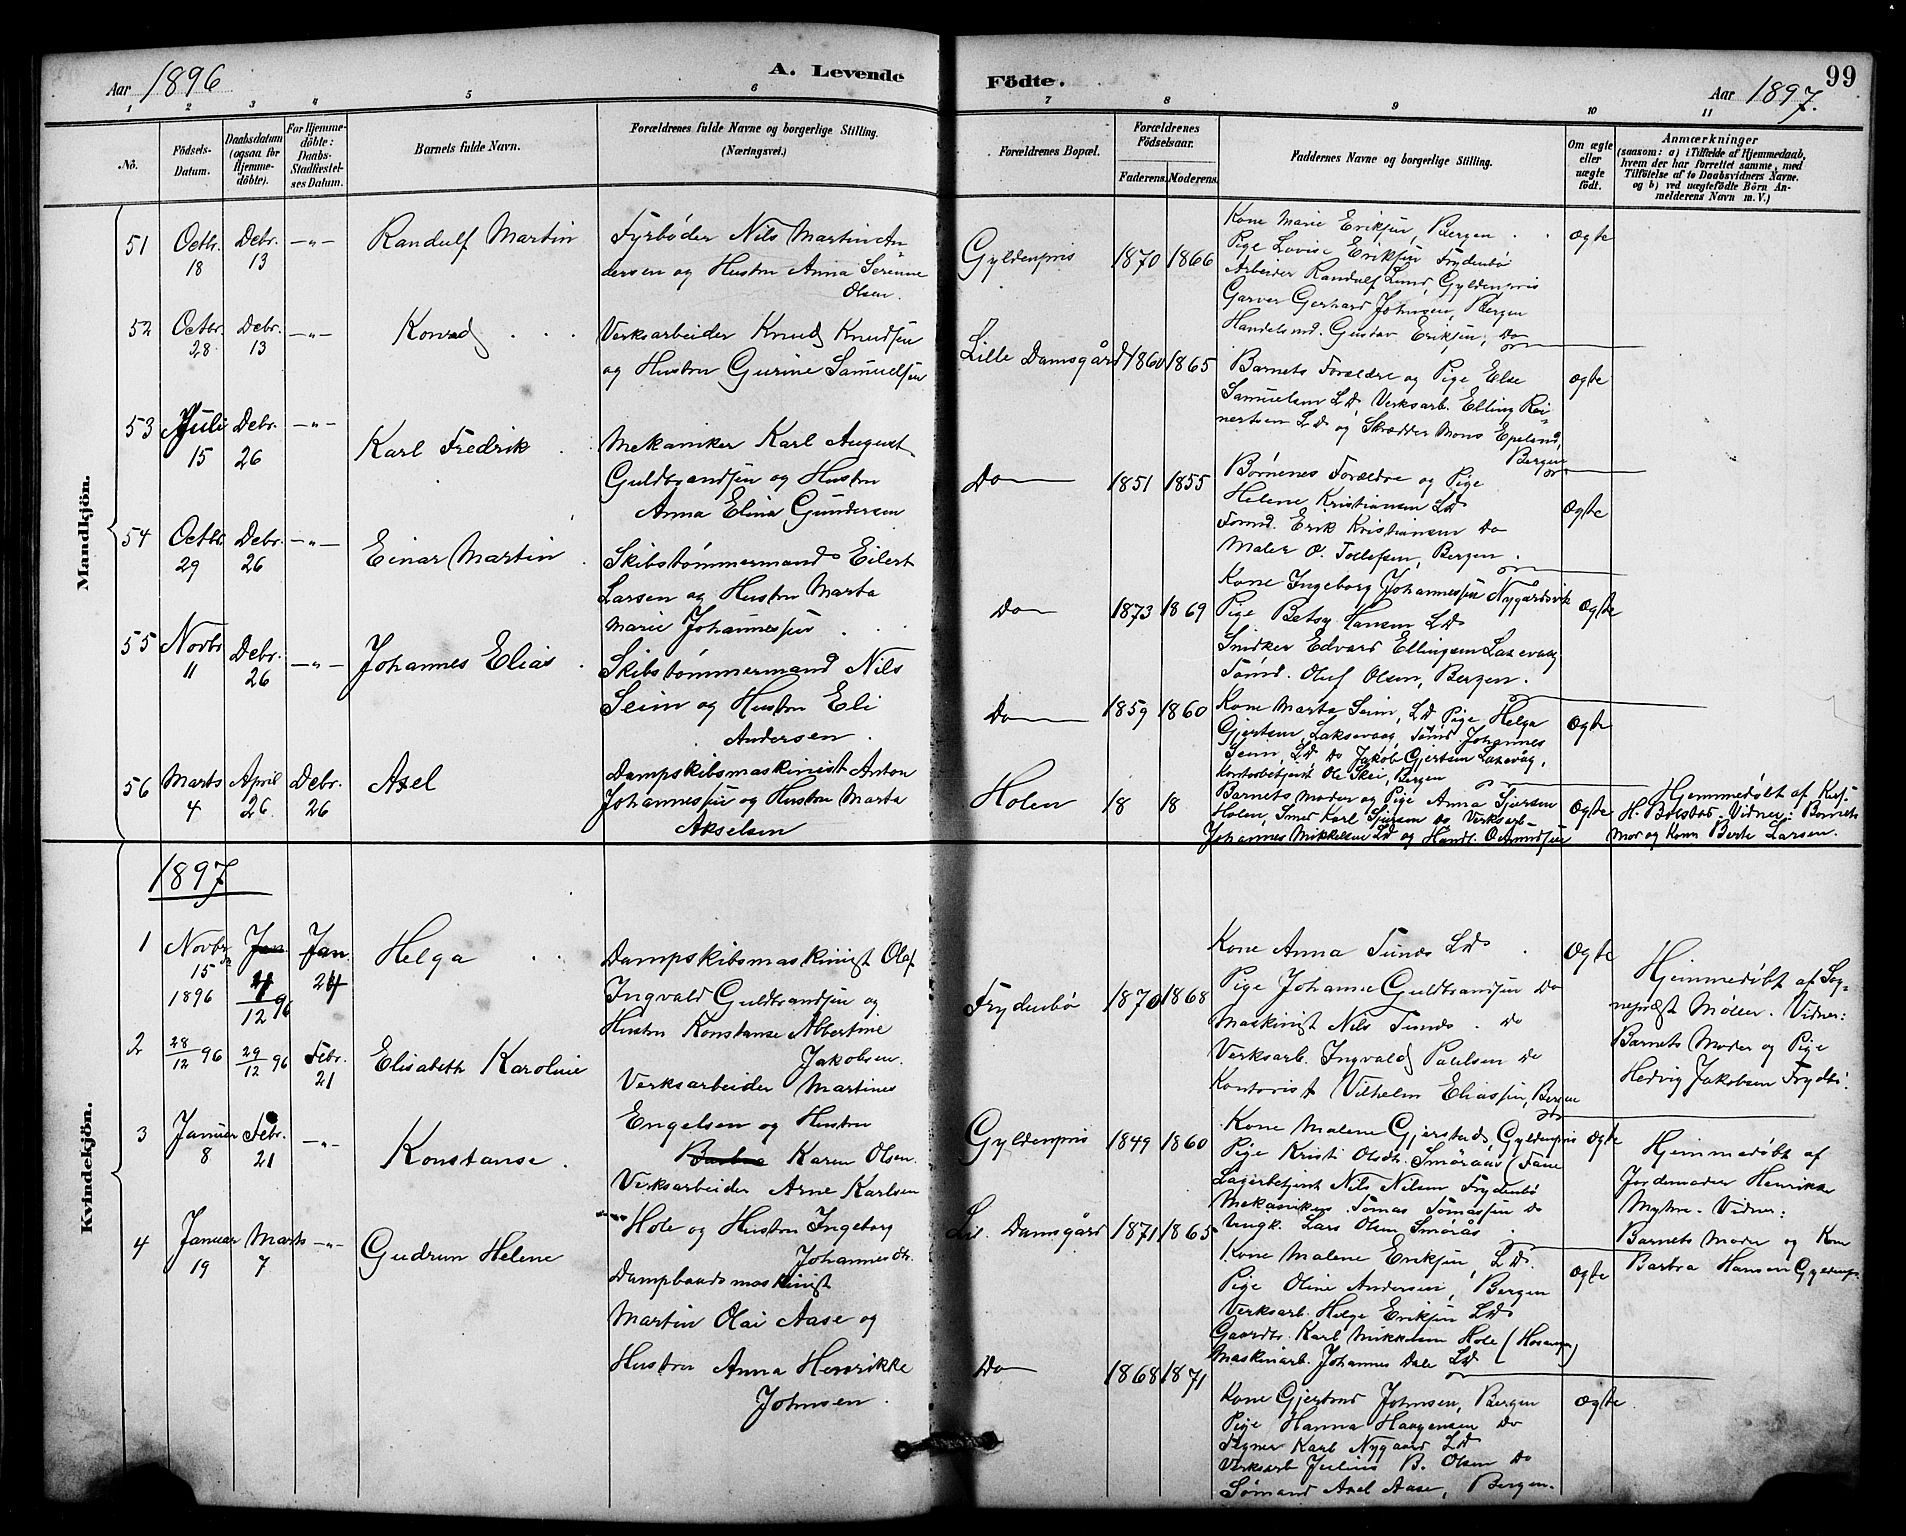 Aar 1896
A. Levende
Födte.
Aar 1897.
99
1 2 3 4 5 6 7 8 9 10 11
No.
Födsels-
Datum.
Daabsdatum
(ogsaa for
Hjemme-
döbte).
For Hjemme-
döbte:
Daabs-
Stadfæstel-
ses Datum.
Barnets fulde Navn.
Forældrenes fulde Navne og borgerlige Stilling.
(Næringsvei.)
Forældrenes Bopæl.
Forældrenes
Födselsaar.
Faderens. Moderens.
Faddernes Navne og borgerlige Stilling.
Om ægte
eller
uægte
födt.
Anmærkninger
(saasom: a) i Tilfælde af Hjemmedaab,
hvem der har forrettet samme, med
Tilföielse af to Daabsvidners Navne.
og b) ved uægtefödte Börn An-
melderens Navn m. V.)
Mandkjön.
51 Octbr. 18 Debr. 13 —„— Randulf Martin
Fyrbøder Nils Martin An
dersen og Hustru Anna Serine
Olsen.
Gyldenpris 1870 1866
Kone Marie Eriksen, Bergen
Pige Lovise Eriksen Frydenbö
Arbeider Randulf Lund, Gyldenpris
Garver Gerhard Johnsen, Bergen
Handelsmd. Gustav Eriksen, Do
Ægte
52 Octbr. 28 Debr. 13 —„— Konrad
Verksarbeider Knud Knudsen
og Hustru Gurine Samuelsen
Lille Damsgård 1860 1865
Barnets Forældre og Pige Else
Samuelsen L D Verksarb. Elling Rei-
nertsen L D og Skrædder Mons Epeland,
Bergen
Ægte
53 Juli 15 Debr. 26 —„— Karl Fredrik
Mekaniker Karl August
Guldbrandsen og Hustru
Anna Elina Gundersen
Do 1851 1855
Børnenes Forældre og Pige
Helene Kristiansen L D
Tømd. Erik Kristiansen Do
Maler O. Tollefsen, Bergen.
Ægte
54 Octbr. 29 Debr. 26 —„— Einar Martin
Skibstømmermand Eilert
Larsen og Hustru Marta
Marie Johannessen
Do 1873 1869
Kone Ingeborg Johannessen Nygårdsvik
Pige Betsy Hansen L D
Snidker Edvard Ellingsen Laxevaag
Tømd. Oluf Olsen, Bergen.
Ægte
55 Novbr. 11 Debr. 26 —„— Johannes Elias
Skibstømmermand Nils
Seim og Hustru Eli
Andersen.
Do 1859 1860
Kone Marta Seim, L D Pige Helga
Gjertsen, Laksevaag Tømd Johannes
Seim, L D Do Jakob Gjertsen Laxevåg,
Kontorbetjent Ole Skei, Bergen
Ægte
56 Marts 4 April 26 Debr. 26 Axel
Dampskibsmaskinist Anton
Johannessen og Hustru Marta
Akselsen
Holen 18 18
Barnets Moder og Pige Anna Sjursen
Holen, Smed Karl Sjursen Do Verksarb-
Johannes Mikkelsen L D og Handl. O Amundsen
Ægte
Hjemmedøbt af
H. Bolstad. Vidner: Barnets
Mor og Kone Berte Larsen.
1897
Kvindekjön.
1 Novbr 15 1896 Jan. 4/12 96 Jan. 24 Helga
Dampskibsmaskinist Olaf
Ingvald Guldbrandsen og
Hustru Konstanse Albertine
Jakobsen.
Frydenbö 1870 1868
Kone Anna Tunds L D
Pige Johanne Guldbrandsen Do
Maskinist Nils Tunds. Do
Verksarb. Ingvald Paulsen Do
Kontorist Vilhelm Eliassen, Bergen
Ægte
Hjemmedøbt af Sog-
nepræst Möller. Vidner:
Barnets Moder og Pige
Hedvig Jakobsen Frydbö.
2 28/12 96 29/12 96 Febr. 21 Elisabeth Karoline
Verksarbeider Martines
Engelsen og Hustru
Barbra Karen Olsen.
Gyldenpris 1849 1860
Kone Malene Gjerstad, Gyldenpris
Pige Kristi Olsdtr. Smøraas (Fane
Lagerbetjent Nils Nilsen Frydenbö
Mekanikus Tomas Tomassen Do
Ungk. Lars Olsen Smörås
Ægte
Hjemmedøbt af
Jordemoder Henrikke
Myhre. Vidner:
Barnets Moder og Kone
Barbra Hansen Gyldenps.
3 Januar 8 Febr. 21 —„— Konstanse
Verksarbeider Arne Karlsen
Hole og Hustru Ingeborg
Johannesdtr.
Lil. Damsgård 1871 1865
Kone Malene Eriksen, L D.
Pige Oline Andersen, Bergen
Verksarb. Helge Eriksen L D
Gaardbr. Karl Mikkelsen Hole (Hosanger)
Maskinarb. Johannes Dale L D
Ægte
4 Januar 19 Marts 7 —„— Gudrun Helene
Dampbaadsmaskinist
Martin Olai Aase og
Hustru Anna Henrikke
Johnsen.
Do 1868 1871
Kone Gjertrud Johnsen, Bergen
Pige Hanna Haagensen Do
Karl Nygaard L D
Verksarb Julius B. Olsen Do
Sømand Axel Aase, Bergen.
Ægte.